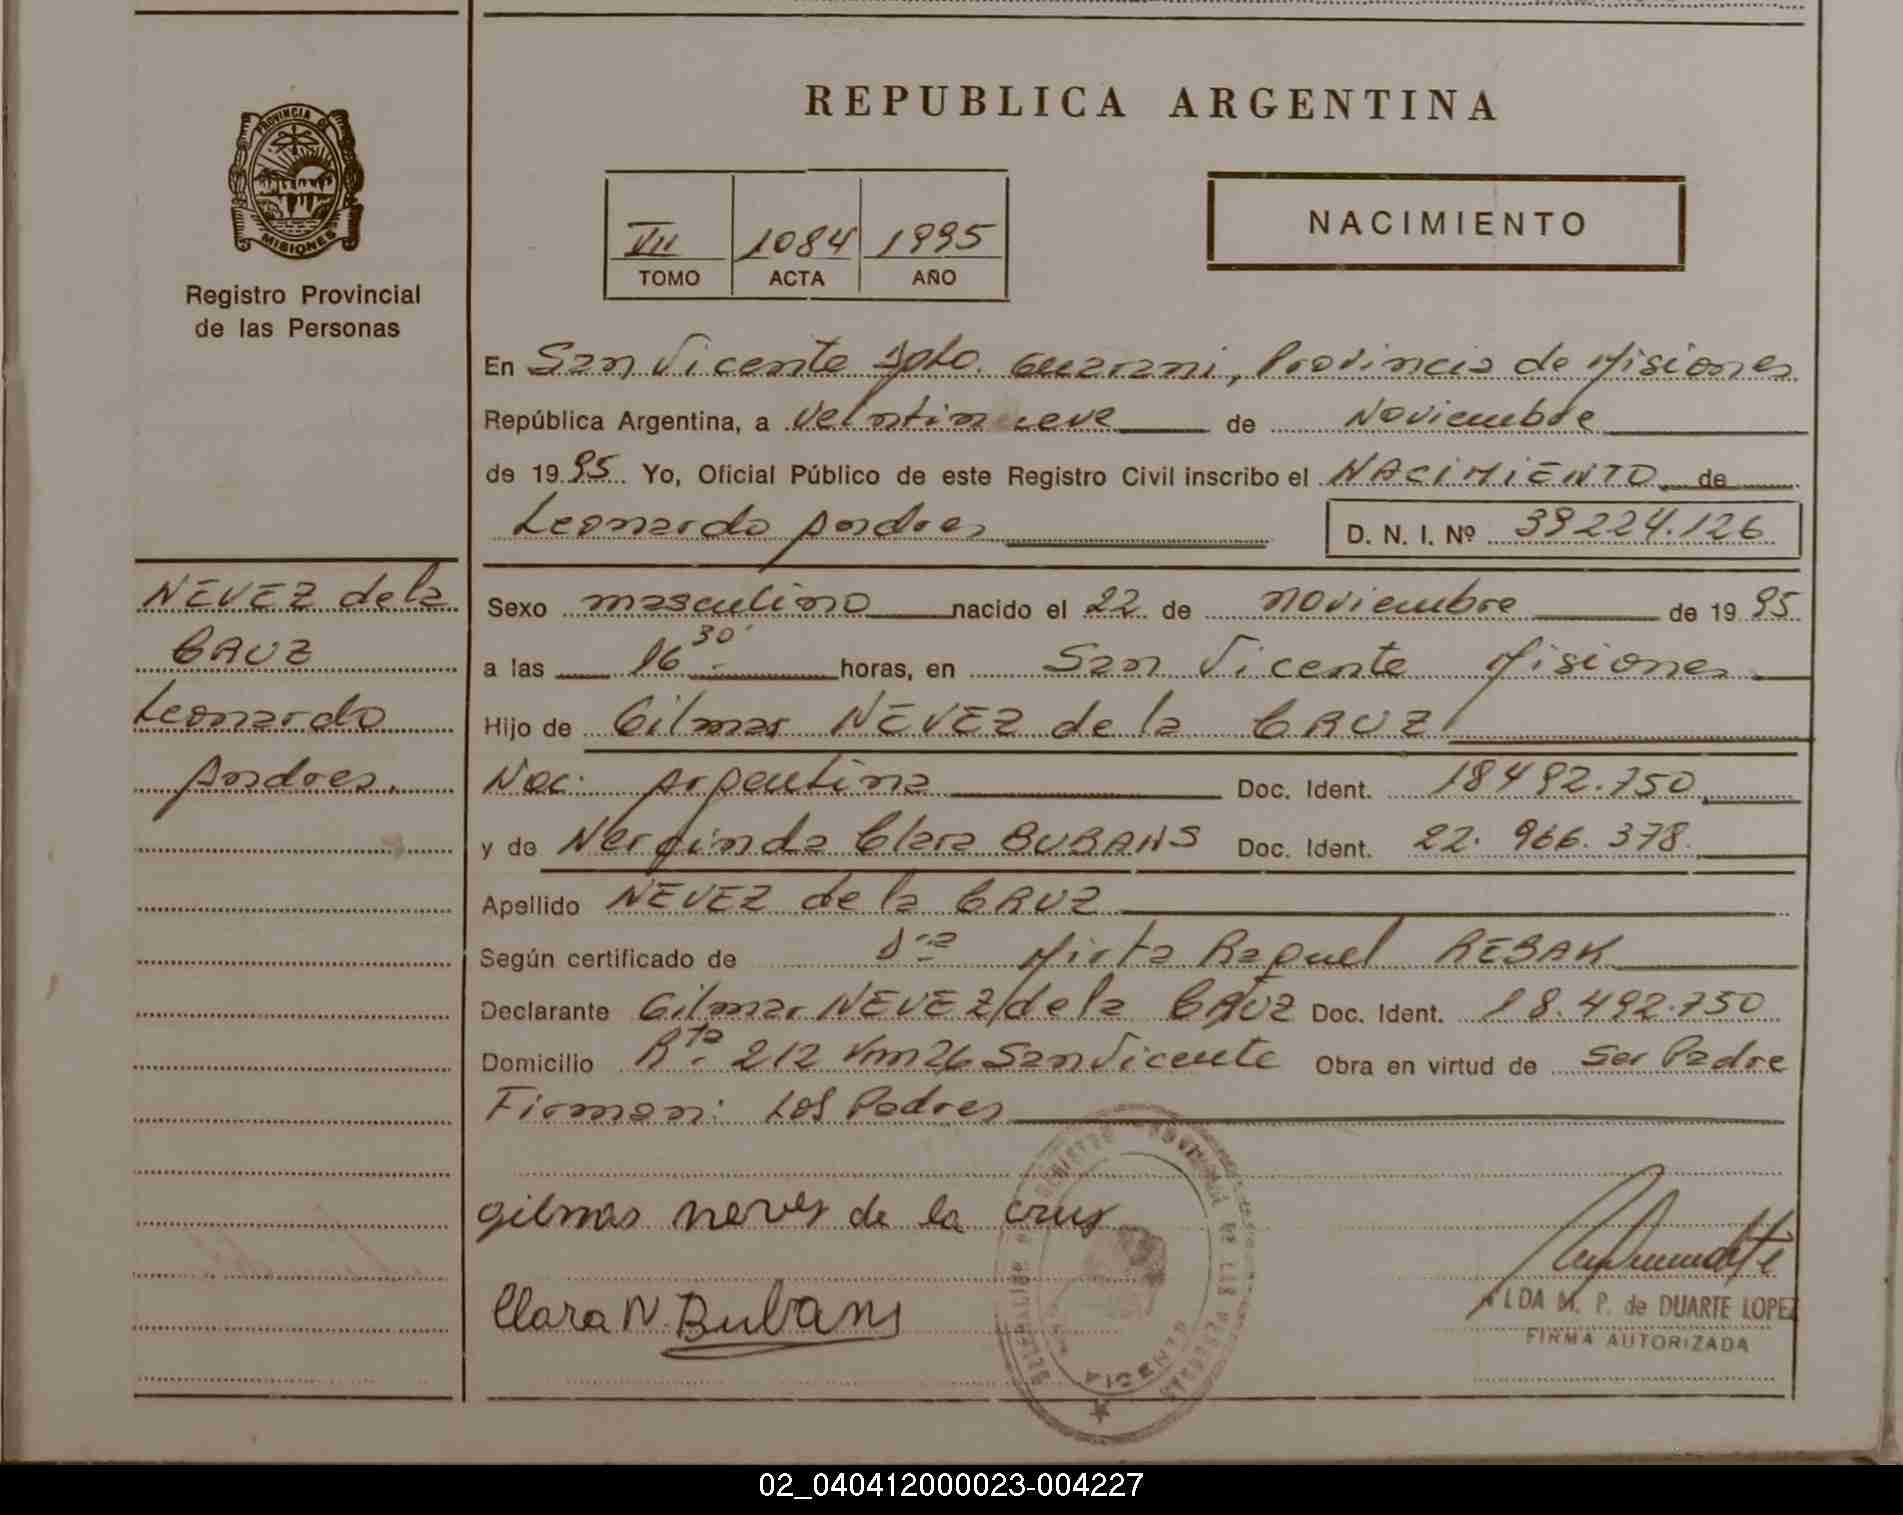 PROVINCIA DE
MISIONES
Registro Provincial
de las Personas
NEVEZ de la
CRUZ
Leonardo
Andres.
REPUBLICA ARGENTINA
VII 1084 1995
TOMO ACTA AÑO
NACIMIENTO
En San Vicente Dpto. Guarani, Provincia de Misiones
República Argentina, a veintinueve de Noviembre
de 1995 Yo, Oficial Público de este Registro Civil inscribo el NACIMIENTO de
Leonardo Andres D. N. I. Nº 39224.126
Sexo masculino nacido el 22 de noviembre de 1995
a las 16 30' horas, en San Vicente Misiones
Hijo de Gilmar NEVEZ de la CRUZ
Nac: Argentina Doc. Ident. 18492.750
y de Nerginda Clara BUBANS Doc. Ident. 22. 966. 378
Apellido NEVEZ de la CRUZ
Según certificado de Dra Mirta Raquel REBAK
Declarante Gilmar NEVEZ de la CRUZ Doc. Ident. 18.492.750
Domicilio Rta. 212 Km 26 San Vicente Obra en virtud de Ser Padre
Firman: Los Padres
gilmar neves de la cruz
Clara N. Bubans
LDA M. P. de DUARTE LOPEZ
FIRMA AUTORIZADA
02_040412000023-004227